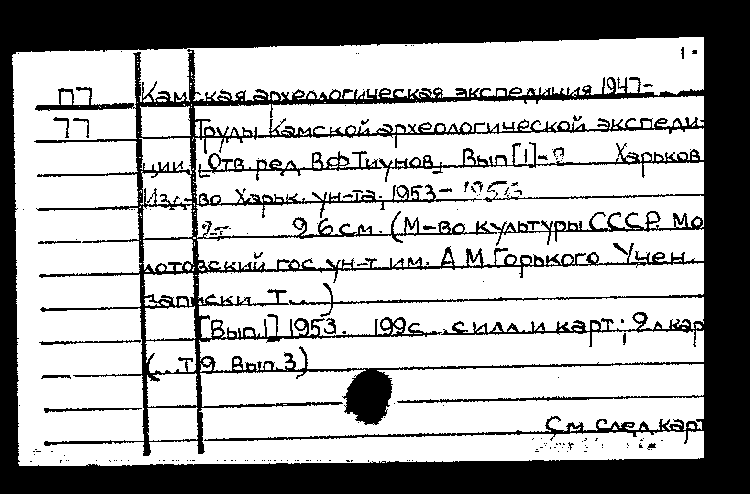 1.
П7 Камская археологическая экспедиция 1947-
77 Труды Камской археологической экспеди-
ции. Отв. ред. В.Ф.Тиунов. Вып[1]-2 Харьков
Изд-во Харьк. ун-та, 1953-1956
2т 26 см. (М-во культуры СССР. Мо
лотовский гос. ун-т им. А.М.Горького Учен.
записки Т...)
[Вып.1] 1953. 199с. с илл. и карт.; 2л кар
(...Т.9 Вып.3)
См след карт